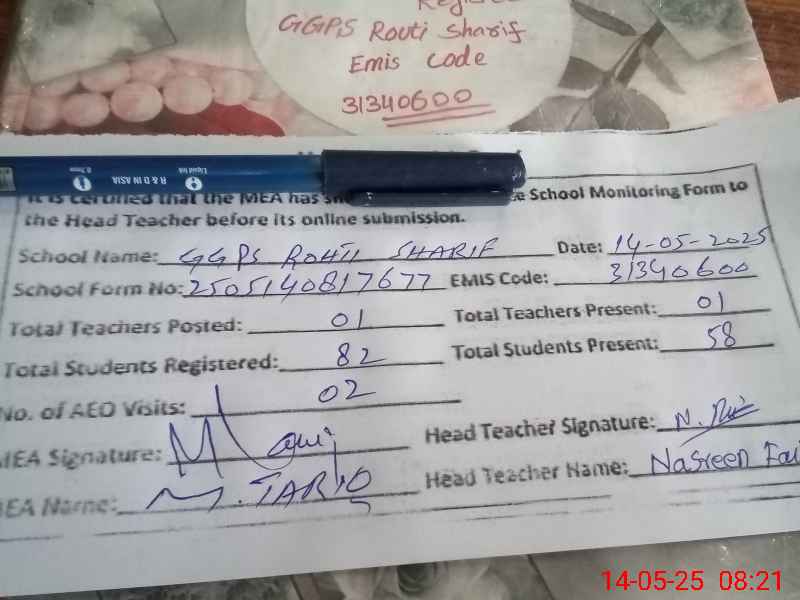 GGPS Routi Sharif
Emis Code
31340600
R & D IN ASIA
Liquid Ink
0.7mm
It is certified that the MEA has School Monitoring Form to
the Head Teacher before its online submission.
School Name: GGPS ROHTI SHARIF Date: 14-05-2025
School Form No: 2505140817677 EMIS Code: 31340600
Total Teachers Posted: 01 Total Teachers Present: 01
Total Students Registered: 82 Total Students Present: 58
No. of AEO Visits: 02
MEA Signature: Head Teacher Signature:
MEA Name: M. TARIQ Head Teacher Name: Nasreen
14-05-25 08:21